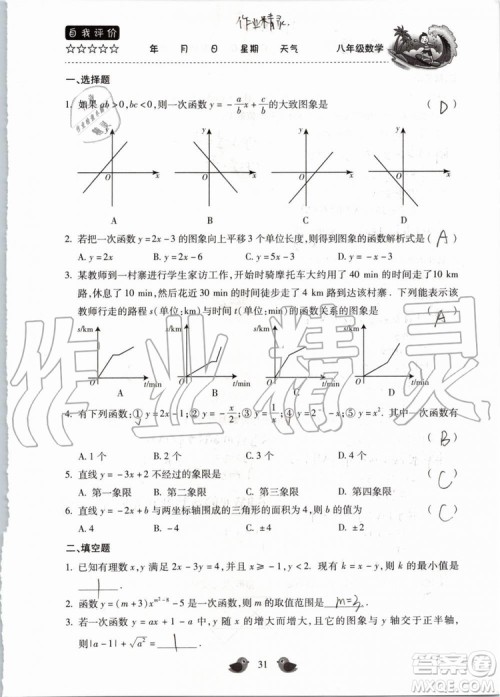 自我评价
作业精灵.
☆☆☆☆☆ 年 月 日 星期 天气 八年级数学
一、选择题
1. 如果 ab>0,bc<0,则一次函数 y=-a/b x+c/b 的大致图象是 ( D )
y y y y
O x O x O x O x
A B C D
2. 若把一次函数 y=2x-3 的图象向上平移 3 个单位长度,则得到的函数的函数解析式是 ( A )
A. y=2x B. y=2x-6 C. y=5x-3 D. y=-x-3
3. 某教师到一村寨进行学生家访工作,开始时骑摩托车大约用了 40 min 的时间行了 10 km
路,休息 20 min,然后花大约 90 min 的时间徒步走了 3 km 山路到达该村寨. 下列能表示该
教师行走的路程 s(单位:km)与时间 t(单位:min)的函数关系的图象是 ( A )
s/km s/km s/km s/km
t/min t/min t/min t/min
A B C D
4. 有下列函数:①y=2x-1;②y=-x/2;③y=1/x;④y=-2x;⑤y=x². 其中一次函数有
( B )
A. 1 个 B. 2 个 C. 3 个 D. 4 个
5. 直线 y=-3x+2 不经过的象限是 ( C )
A. 第一象限 B. 第二象限 C. 第三象限 D. 第四象限
6. 直线 y=-2x+b 与两坐标轴围成的三角形的面积为 4,则 b 的值为 ( C )
A. 4 B. -4 C. ±4 D. ±2
二、填空题
1. 已知有理数 x,y 满足 2x-3y=4,并且 x≥-1,y<2. 现有 k=x-y,则 k 的最小值是
1 .
2. 函数 y=(m+3)x^(m²-8)-5 是一次函数,则 m 的取值范围是 m=3 .
3. 若一次函数 y=ax+1-a 中,y 随 x 的增大而增大,且它的图象与 y 轴交于正半轴,
则|a-1|+√a²= 1 .
31
作业精灵